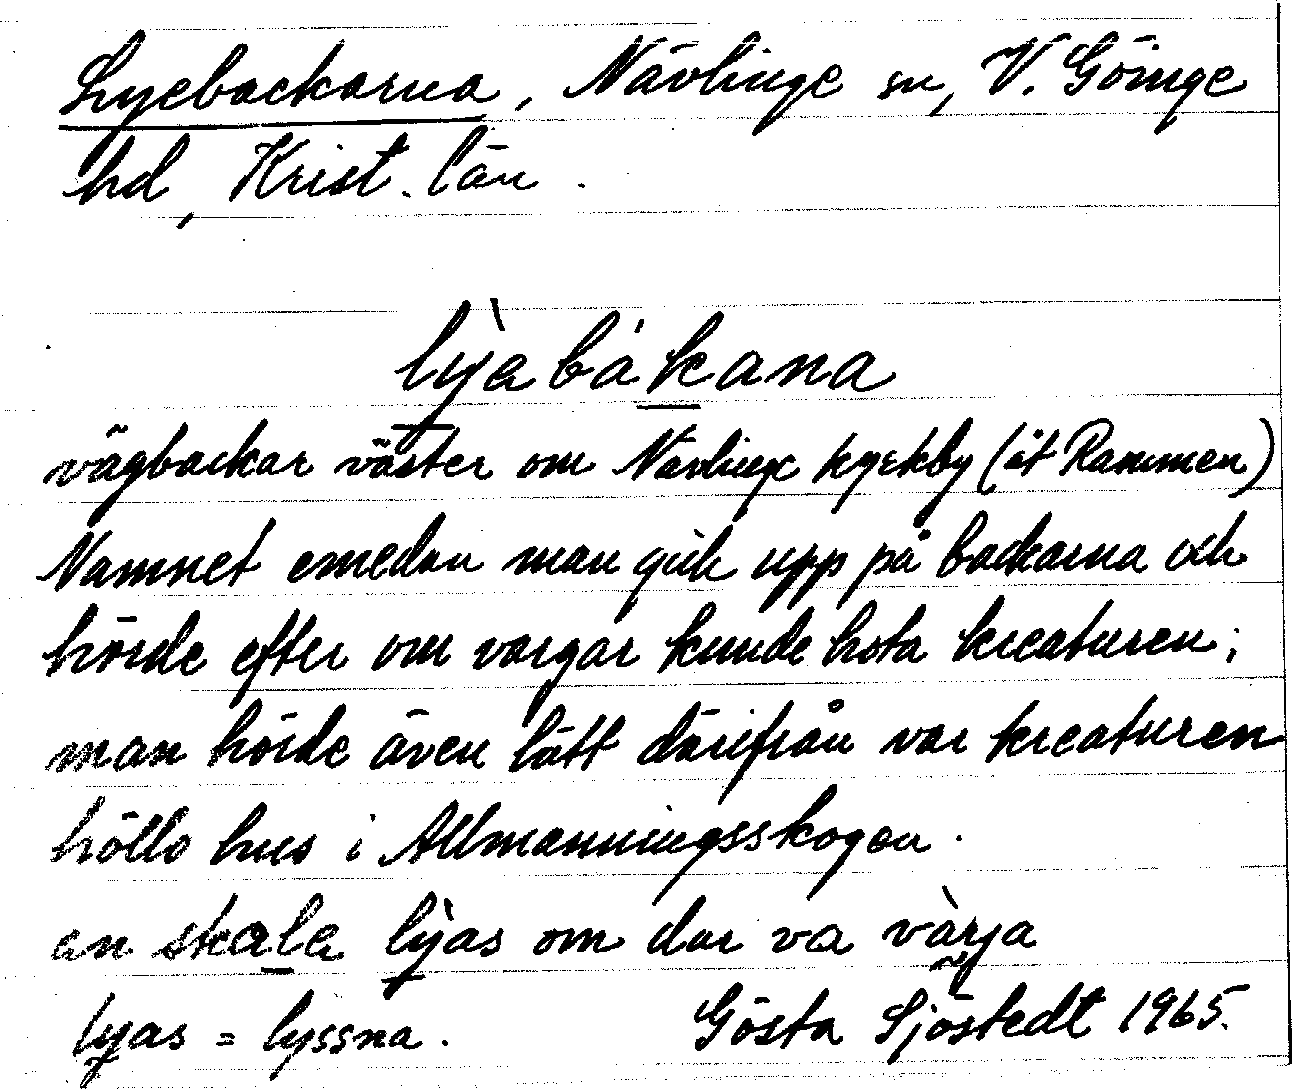 Lyebackarna, Nävlinge sn, V. Göinge
hd, Krist. län.
lỳabákana
vägbackar väster om Nävlinge kyrkby (åt Rammen)
Namnet emedan man gick upp på backarna och
hörde efter om vargar kunde hota kreaturen;
man hörde även lätt därifrån var kreaturen
höllo hus i Allmänningsskogen.
an skale lỳas om dar va vàrja
lyas = lyssna. Gösta Sjöstedt 1965.